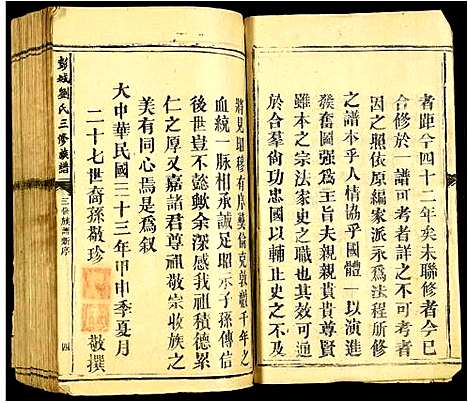 者距今四十二年矣未聯修者今已
合修於一譜可考者詳之不可考者
因之照依原編家派永爲法程所修
之譜本乎人情協乎國體一以演進
族奮圖強爲主旨夫親親貴貴尊賢
雖本之宗法家史之大義
於合羣尚功忠國以輔止史之不及
將見昭穆有序彝倫克敦繼千年之
血統一脈相承誠足昭示子孫傳信
後世豈不懿歟余深感我祖積德累
仁之厚又嘉諸君尊祖敬宗收族之
美有同心焉是爲叙
大中華民國三十三年甲申季夏月
二十七世裔孫敬珍 敬撰
彭城劉氏三修族譜
三修族譜新序
四